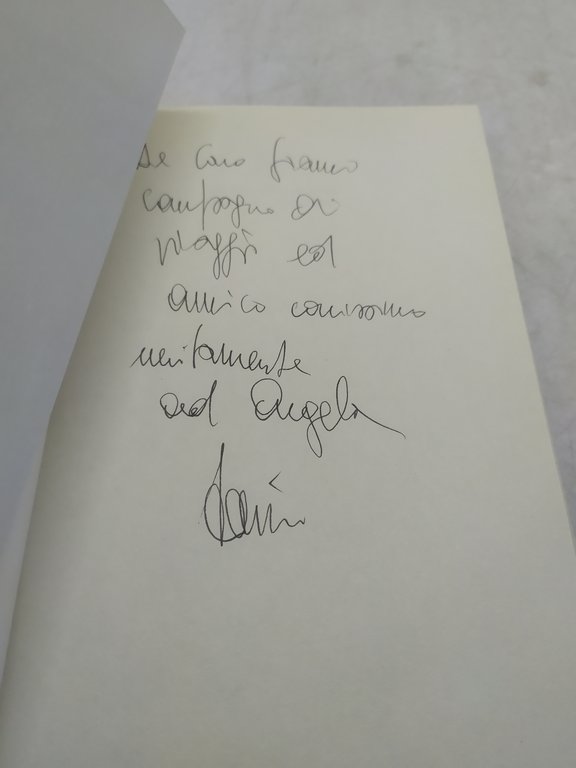 al caro Franco
compagno di
viaggi ed
amico carissimo
unitamente
ad Angela